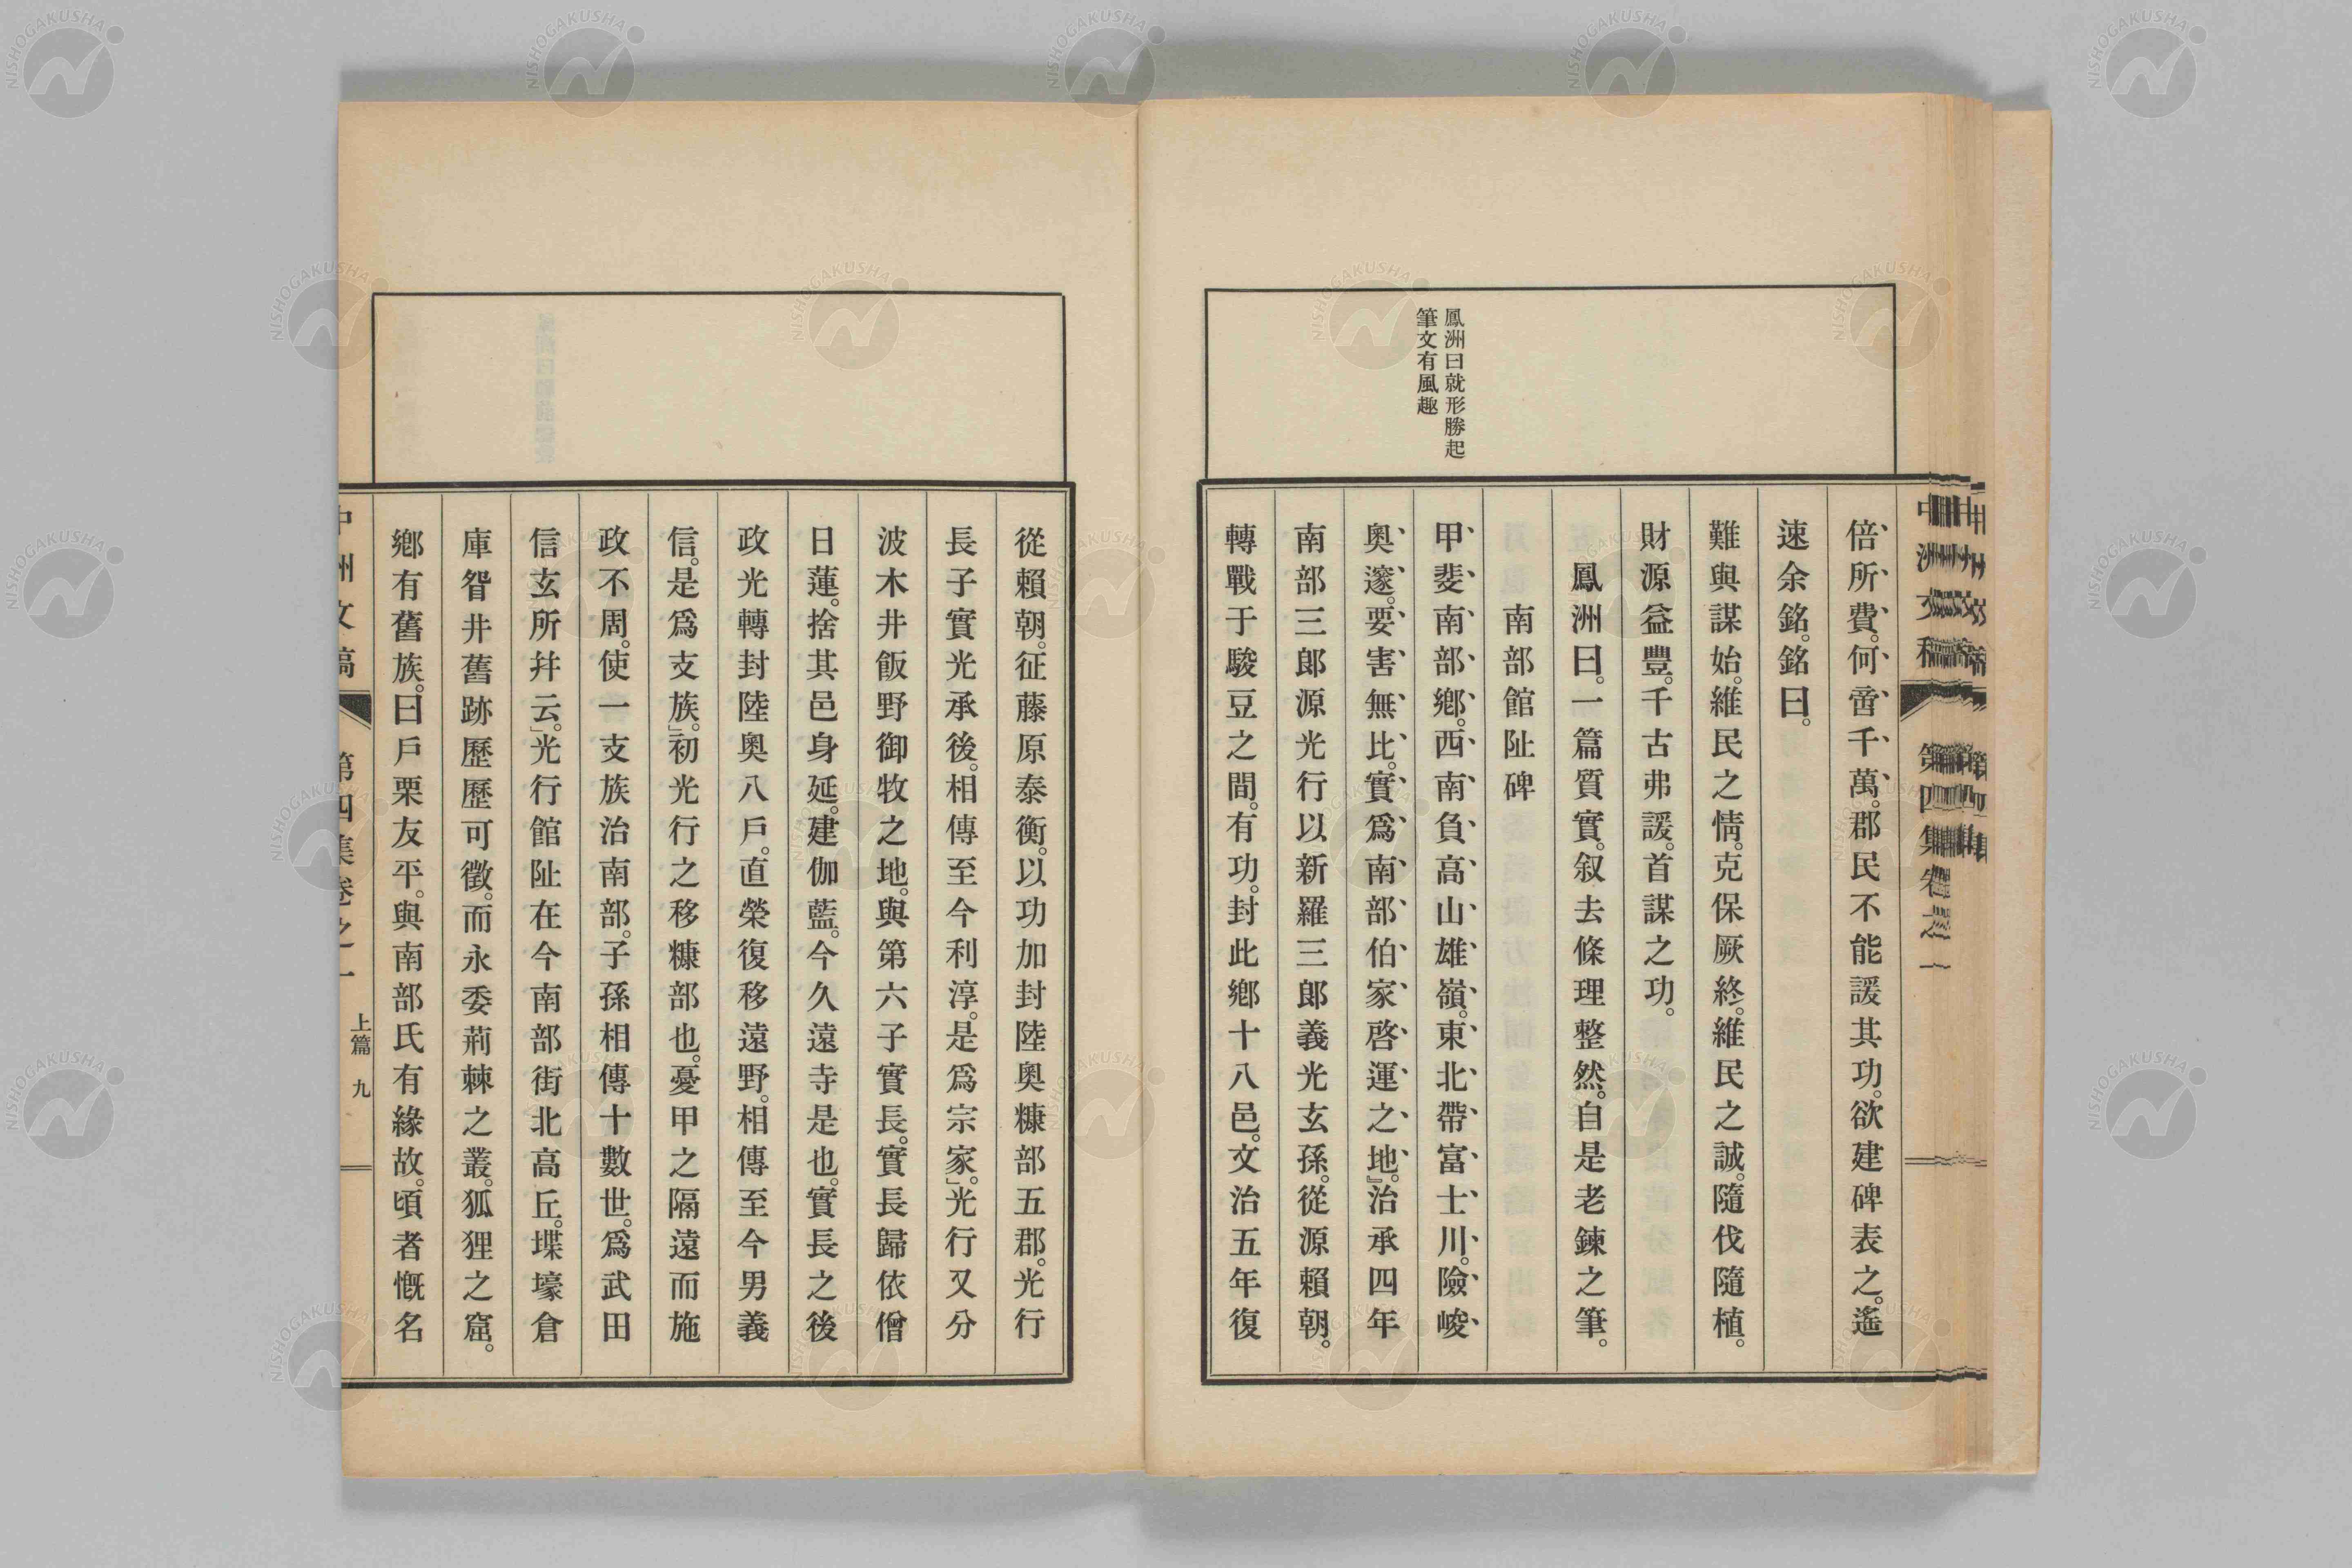 倍所費。何啻千萬。郡民不能諼其功。欲建碑表之。遙
速余銘。銘曰。
難與謀始。維民之情。克保厥終。維民之誠。隨伐隨植。
財源益豐。千古弗諼。首謀之功。
鳳洲曰。一篇質實。叙去條理整然。自是老鍊之筆。
南部館阯碑
鳳洲曰就形勝起
筆文有風趣
甲斐南部鄕。西南負高山雄嶺。東北帶富士川。險峻
奧邃。要害無比。實爲南部伯家啓運之地。』治承四年
南部三郎源光行以新羅三郎義光玄孫。從源賴朝。
轉戰于駿豆之間。有功。封此鄕十八邑。文治五年復
從賴朝。征藤原泰衡。以功加封陸奧糠部五郡。光行
長子實光承後。相傳至今利淳。是爲宗家。』光行又分
波木井飯野御牧之地。與第六子實長。實長歸依僧
日蓮。捨其邑身延。建伽藍。今久遠寺是也。實長之後
政光轉封陸奧八戶。直榮復移遠野。相傳至今男義
信。是爲支族。』初光行之移糠部也。憂甲之隔遠而施
政不周。使一支族治南部。子孫相傳十數世。爲武田
信玄所幷云。』光行館阯在今南部街北高丘。堞壕倉
庫眢井舊跡歷歷可徵。而永委荊棘之叢。狐狸之窟。
鄕有舊族。曰戶栗友平。與南部氏有緣故。頃者慨名
中洲文稿 第四集卷之一 上篇 九